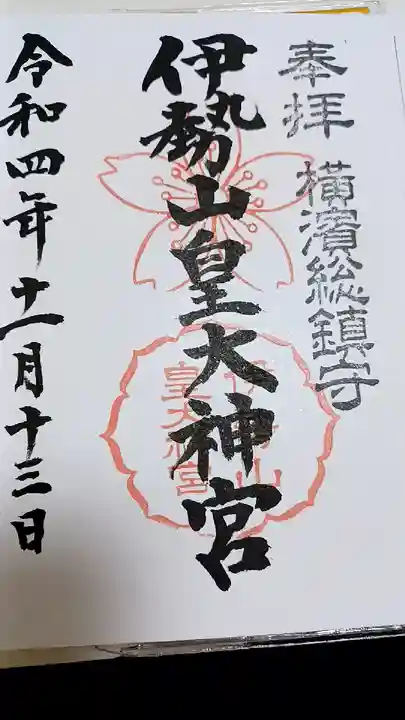 奉拝 横濱総鎮守
伊勢山皇大神宮
伊勢山
皇大神宮
令和四年十一月十三日